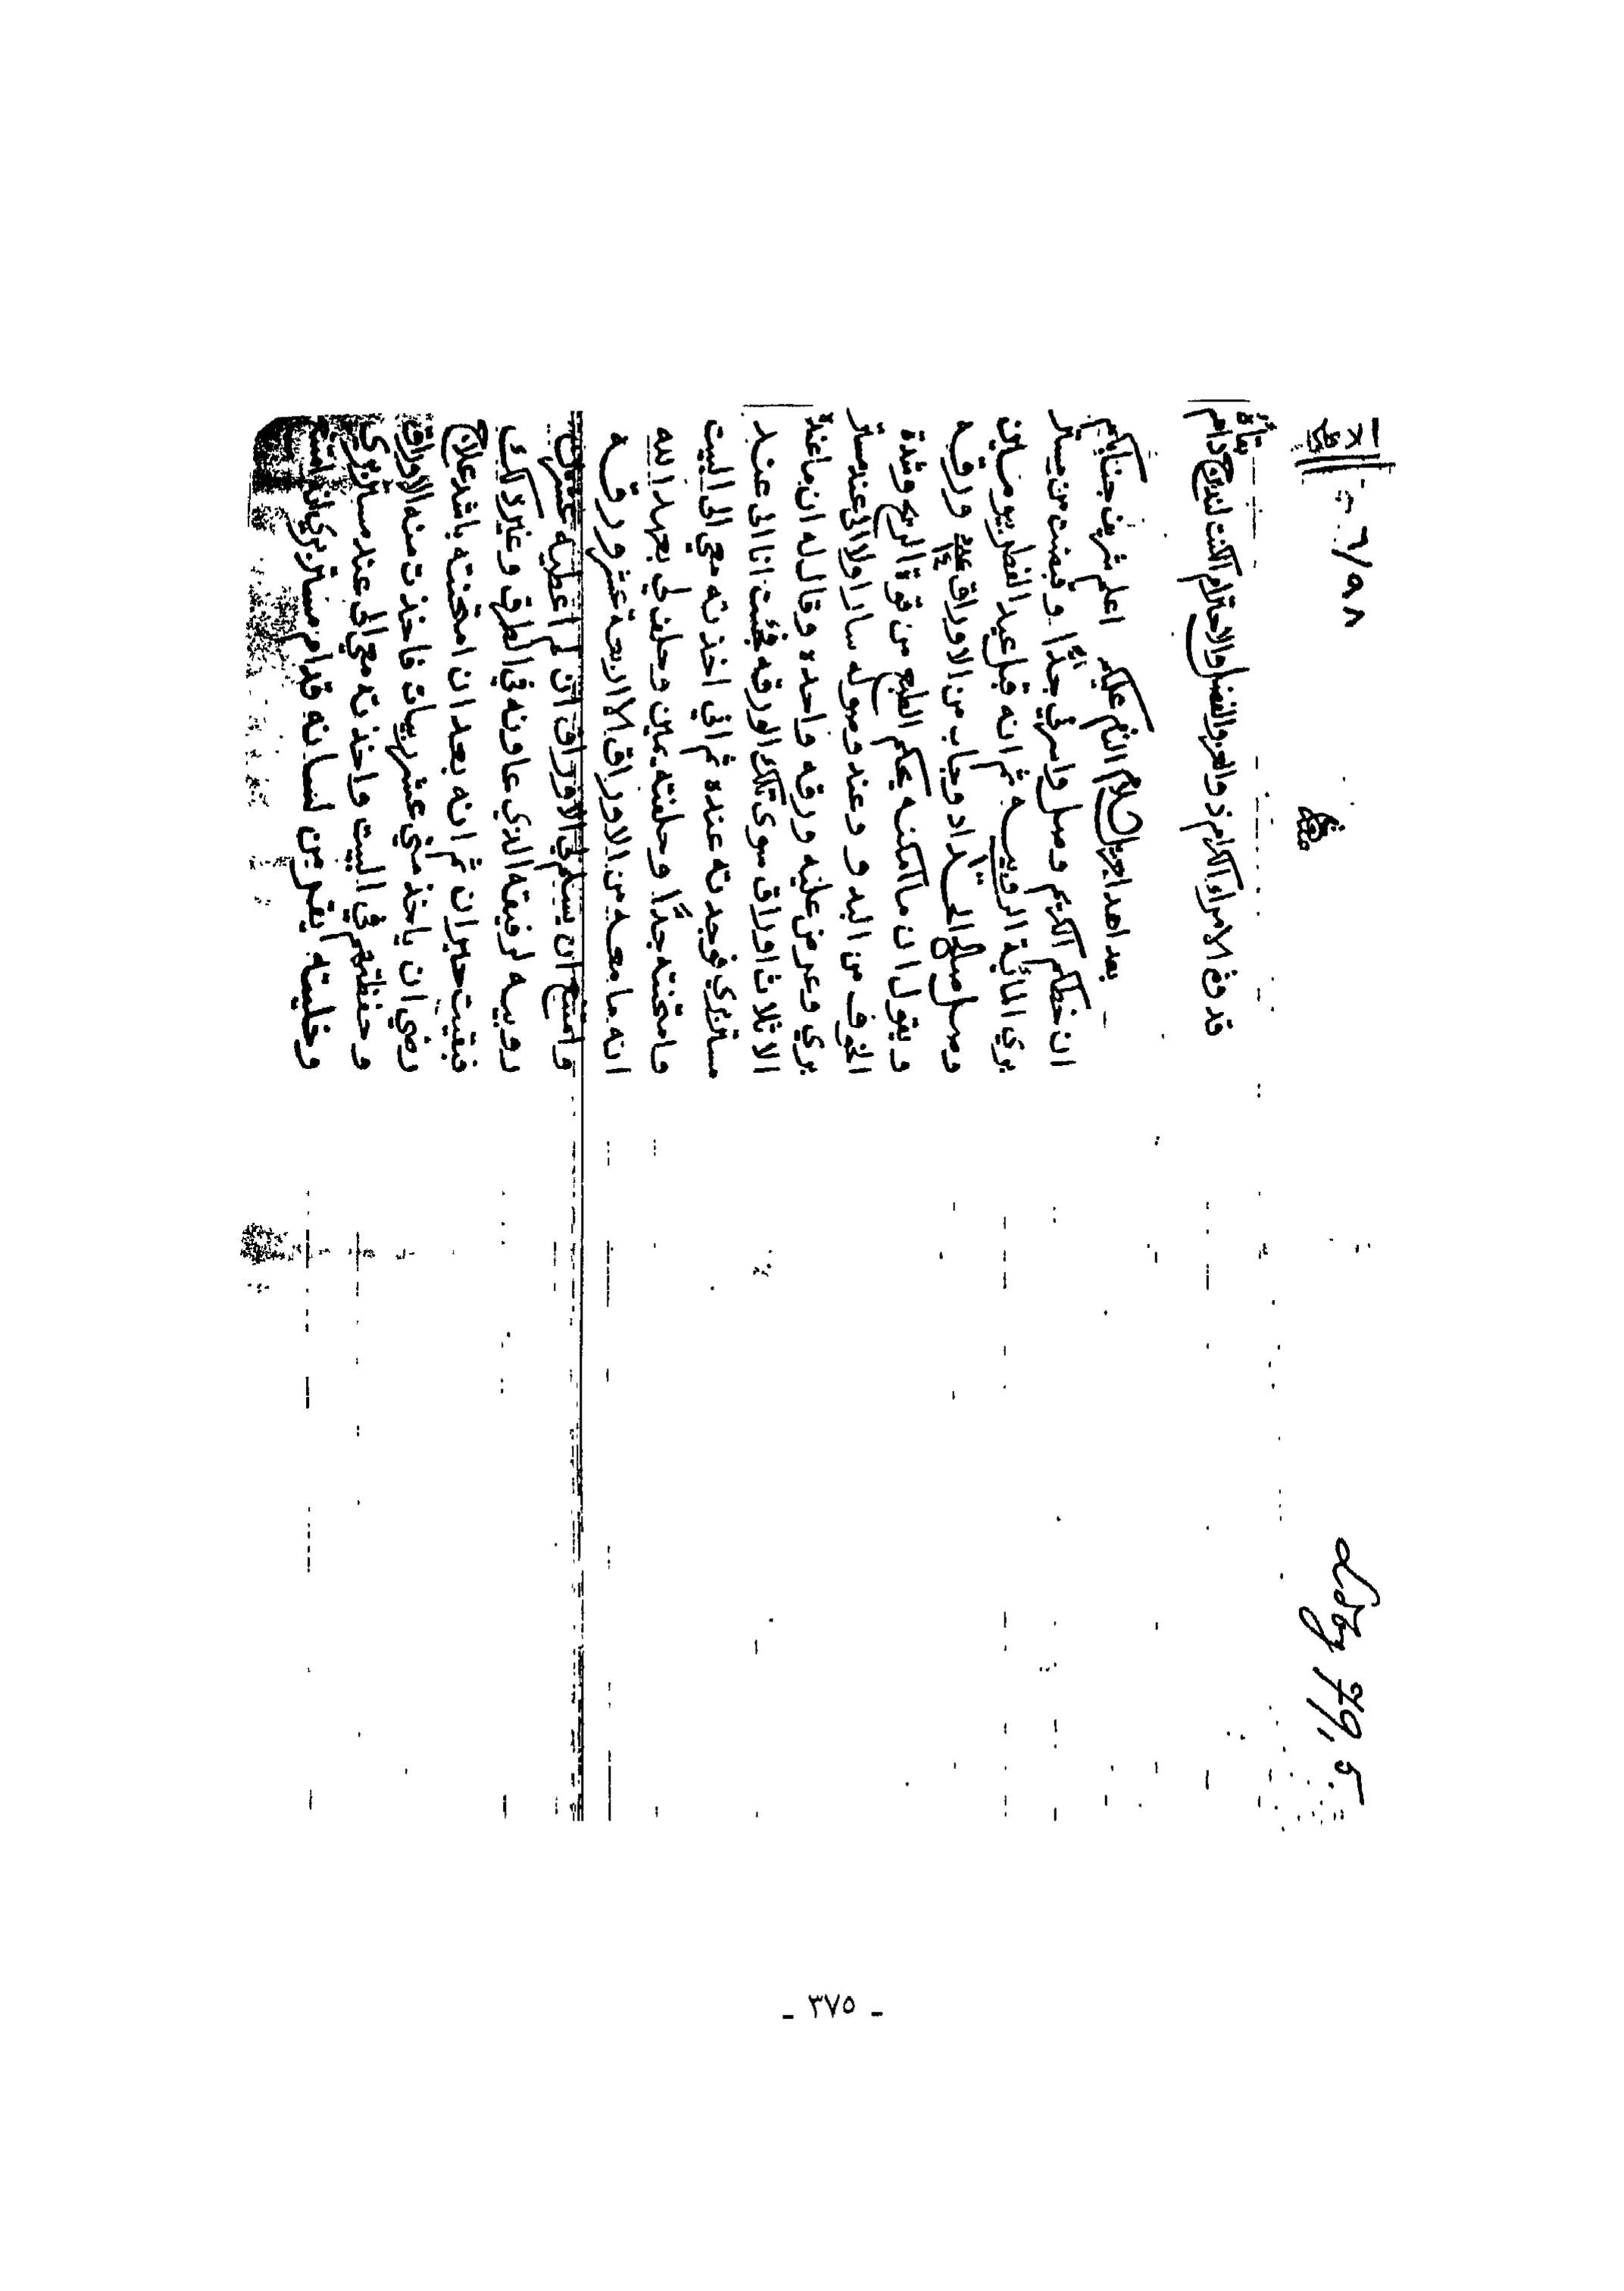 ٦/٥٨
قدوة الامراء الكرام ذو العز والفضل والاحترام الكنت لندبرج دام
بقاؤه
بعد اهداء جزيل السلام التام عليكم اعلم شريف جنابكم
ان خطكم الكريم وصل واسرني جدًا وقبضت من مستر
بري المأية الروبيه ثم انه قبل عيد الفطر بيومين
وصل صالح الحداد وجاب من الاوراق ورقه
ويقول ان ما امكنه يحكم الطبع من قوة الريح وشدة
الخوف من البدو وعند وصوله سار اولا الى عند مستر
بري وعرض عليه ورقه واحده وقال له ان ما عنده
الا ثلاث اوراق سوى تلك الورقه فجئت انا الى عند
مستر بري فوجدته عنده ثم اني اخذته معي الى البيت
وامتحنته جدًا وحلفته يمين وحلف لي بعهد الله
انه ما معه من الاوراق الا اربعة عشر ورقه
وامتنع ان يسلم لي الاوراق ان لم اعطيه عشرين
روبيه لرفيقه الذي عاونه في الطرق وغير ذلك
فبقيت حيران ثم انه بعد ان امتحنته باشد علاج
رضي ان ياخذ مني عشر ربيات فاخذت منه الاوراق
وحفظتهم في البيت واخذته معي الى عند مستر بري
وخليته يقر من لسانه قدام مستر بري انه
Ldbg 79, 5
- ٣٧٥ -